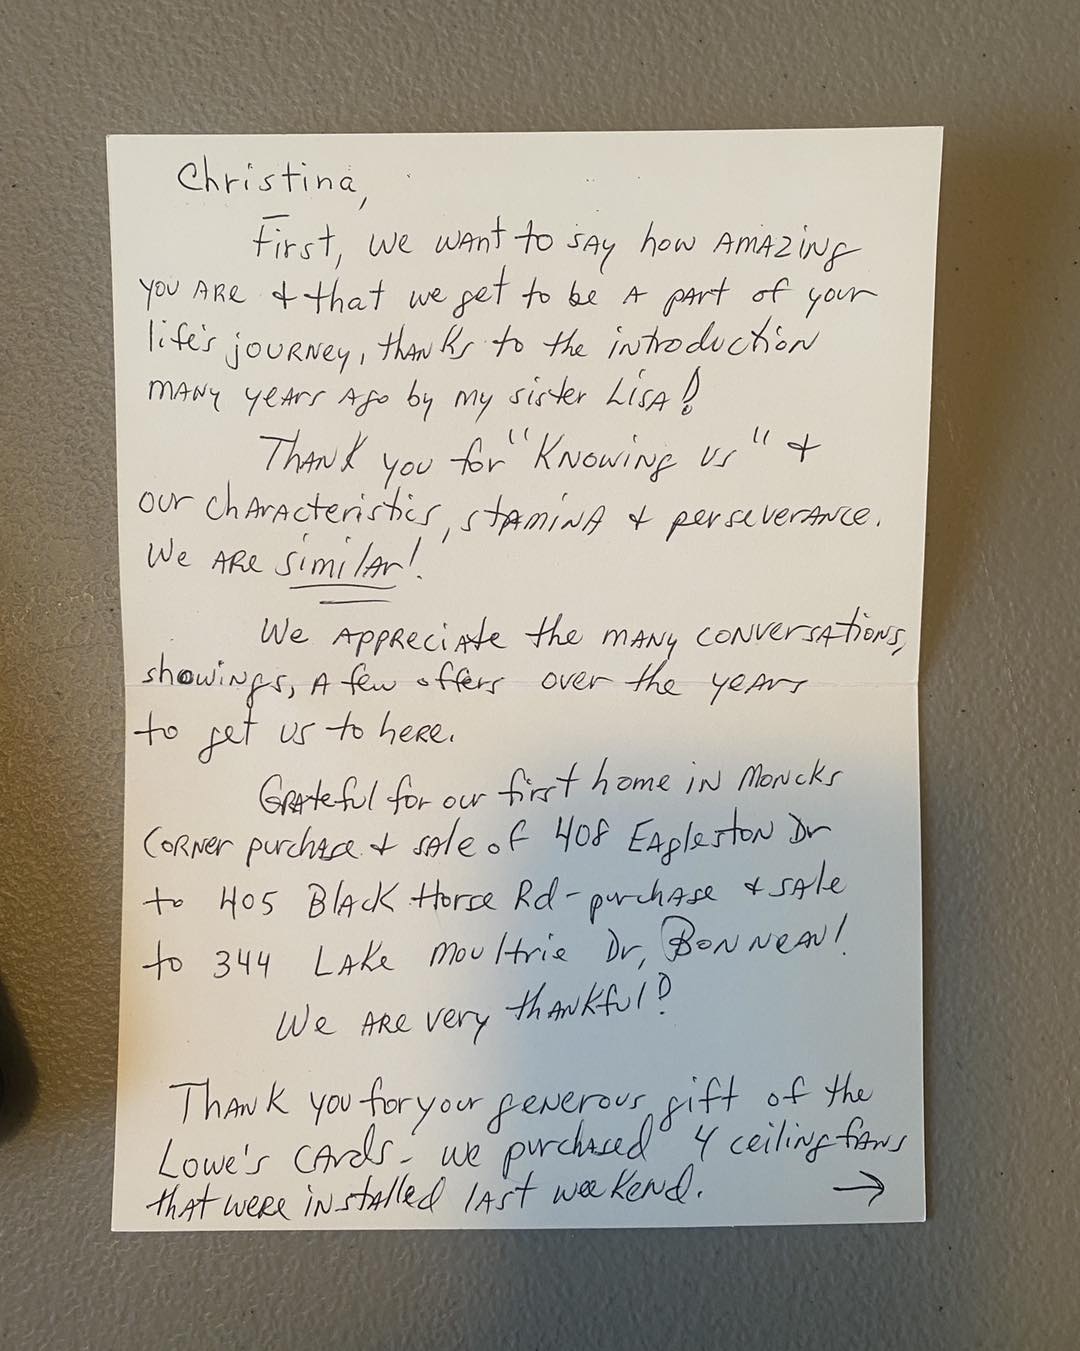 Christina,
First, we want to say how amazing
you are & that we get to be a part of your
life's journey, thanks to the introduction
many years ago by my sister Lisa!
Thank you for "Knowing us" &
our characteristics, stamina & perseverance.
We are similar!
We appreciate the many conversations,
showings, a few offers over the years
to get us to here.
Grateful for our first home in Moncks
Corner purchase & sale of 408 Eagleston Dr
to 405 Black Horse Rd - purchase & sale
to 344 Lake Moultrie Dr, Bonneau!
We are very thankful!
Thank you for your generous gift of the
Lowe's cards - we purchased 4 ceiling fans
that were installed last weekend. →